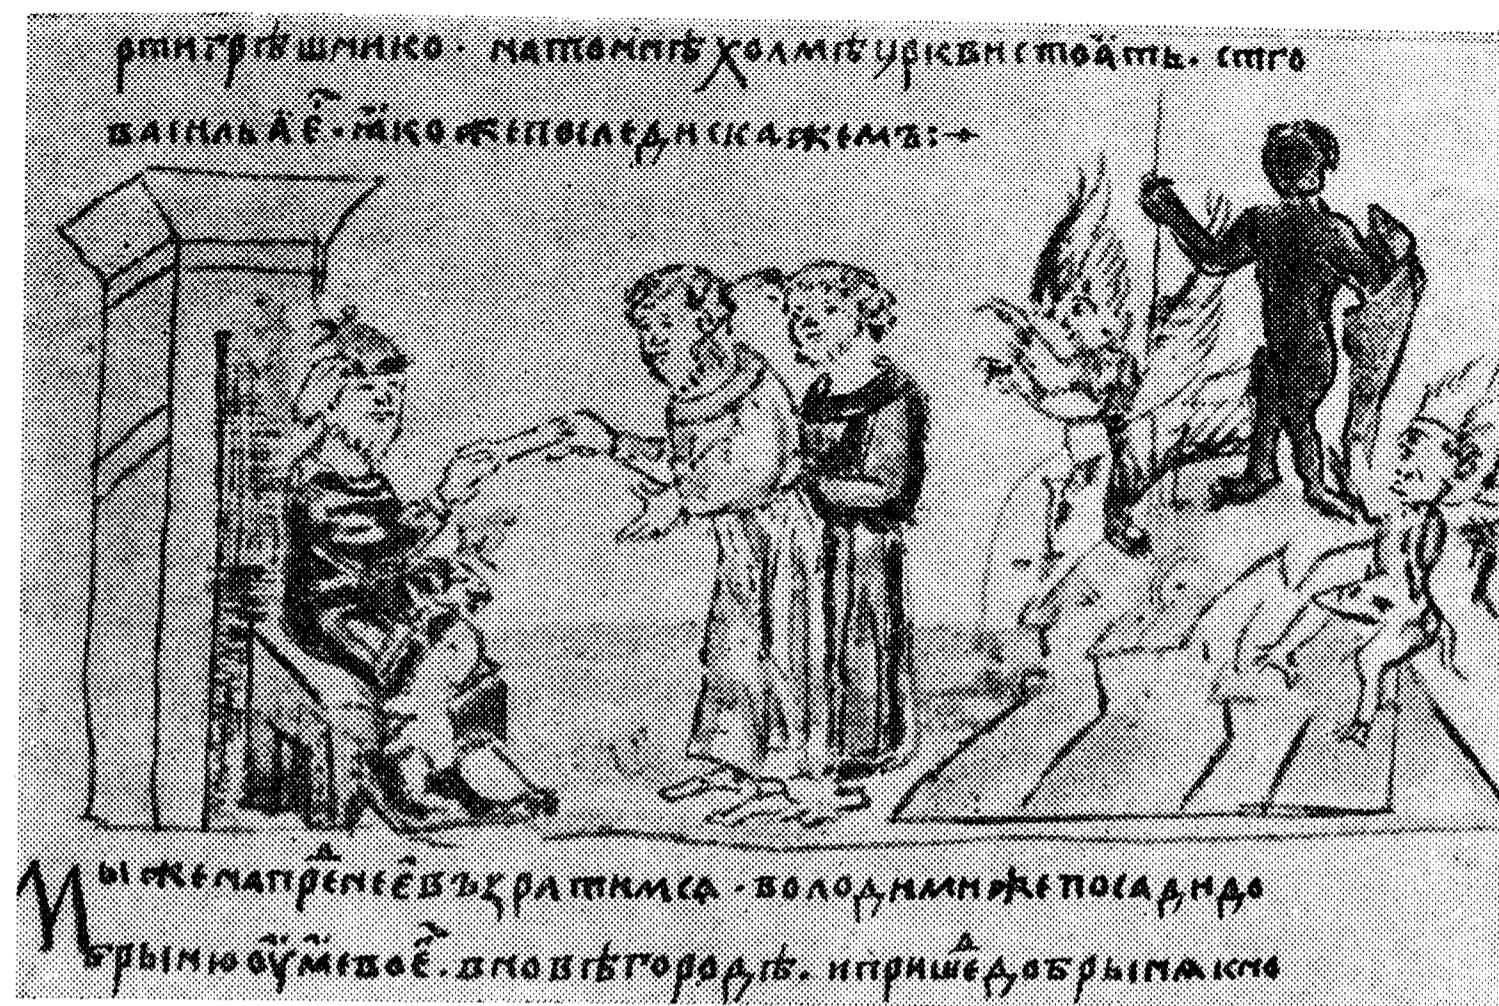 рти грѣшнико · на том ннѣ холмѣ цркви стоѧть. стго
васильѧ еⷭ҇ · ꙗко же последи скажемъ:~
Мы же на преⷣнеⷭе въꙁратимсѧ · володими же посади до
брыню оуꙗ своеⷢ. в новѣгородѣ. и пришеⷣ добрынѧ к но